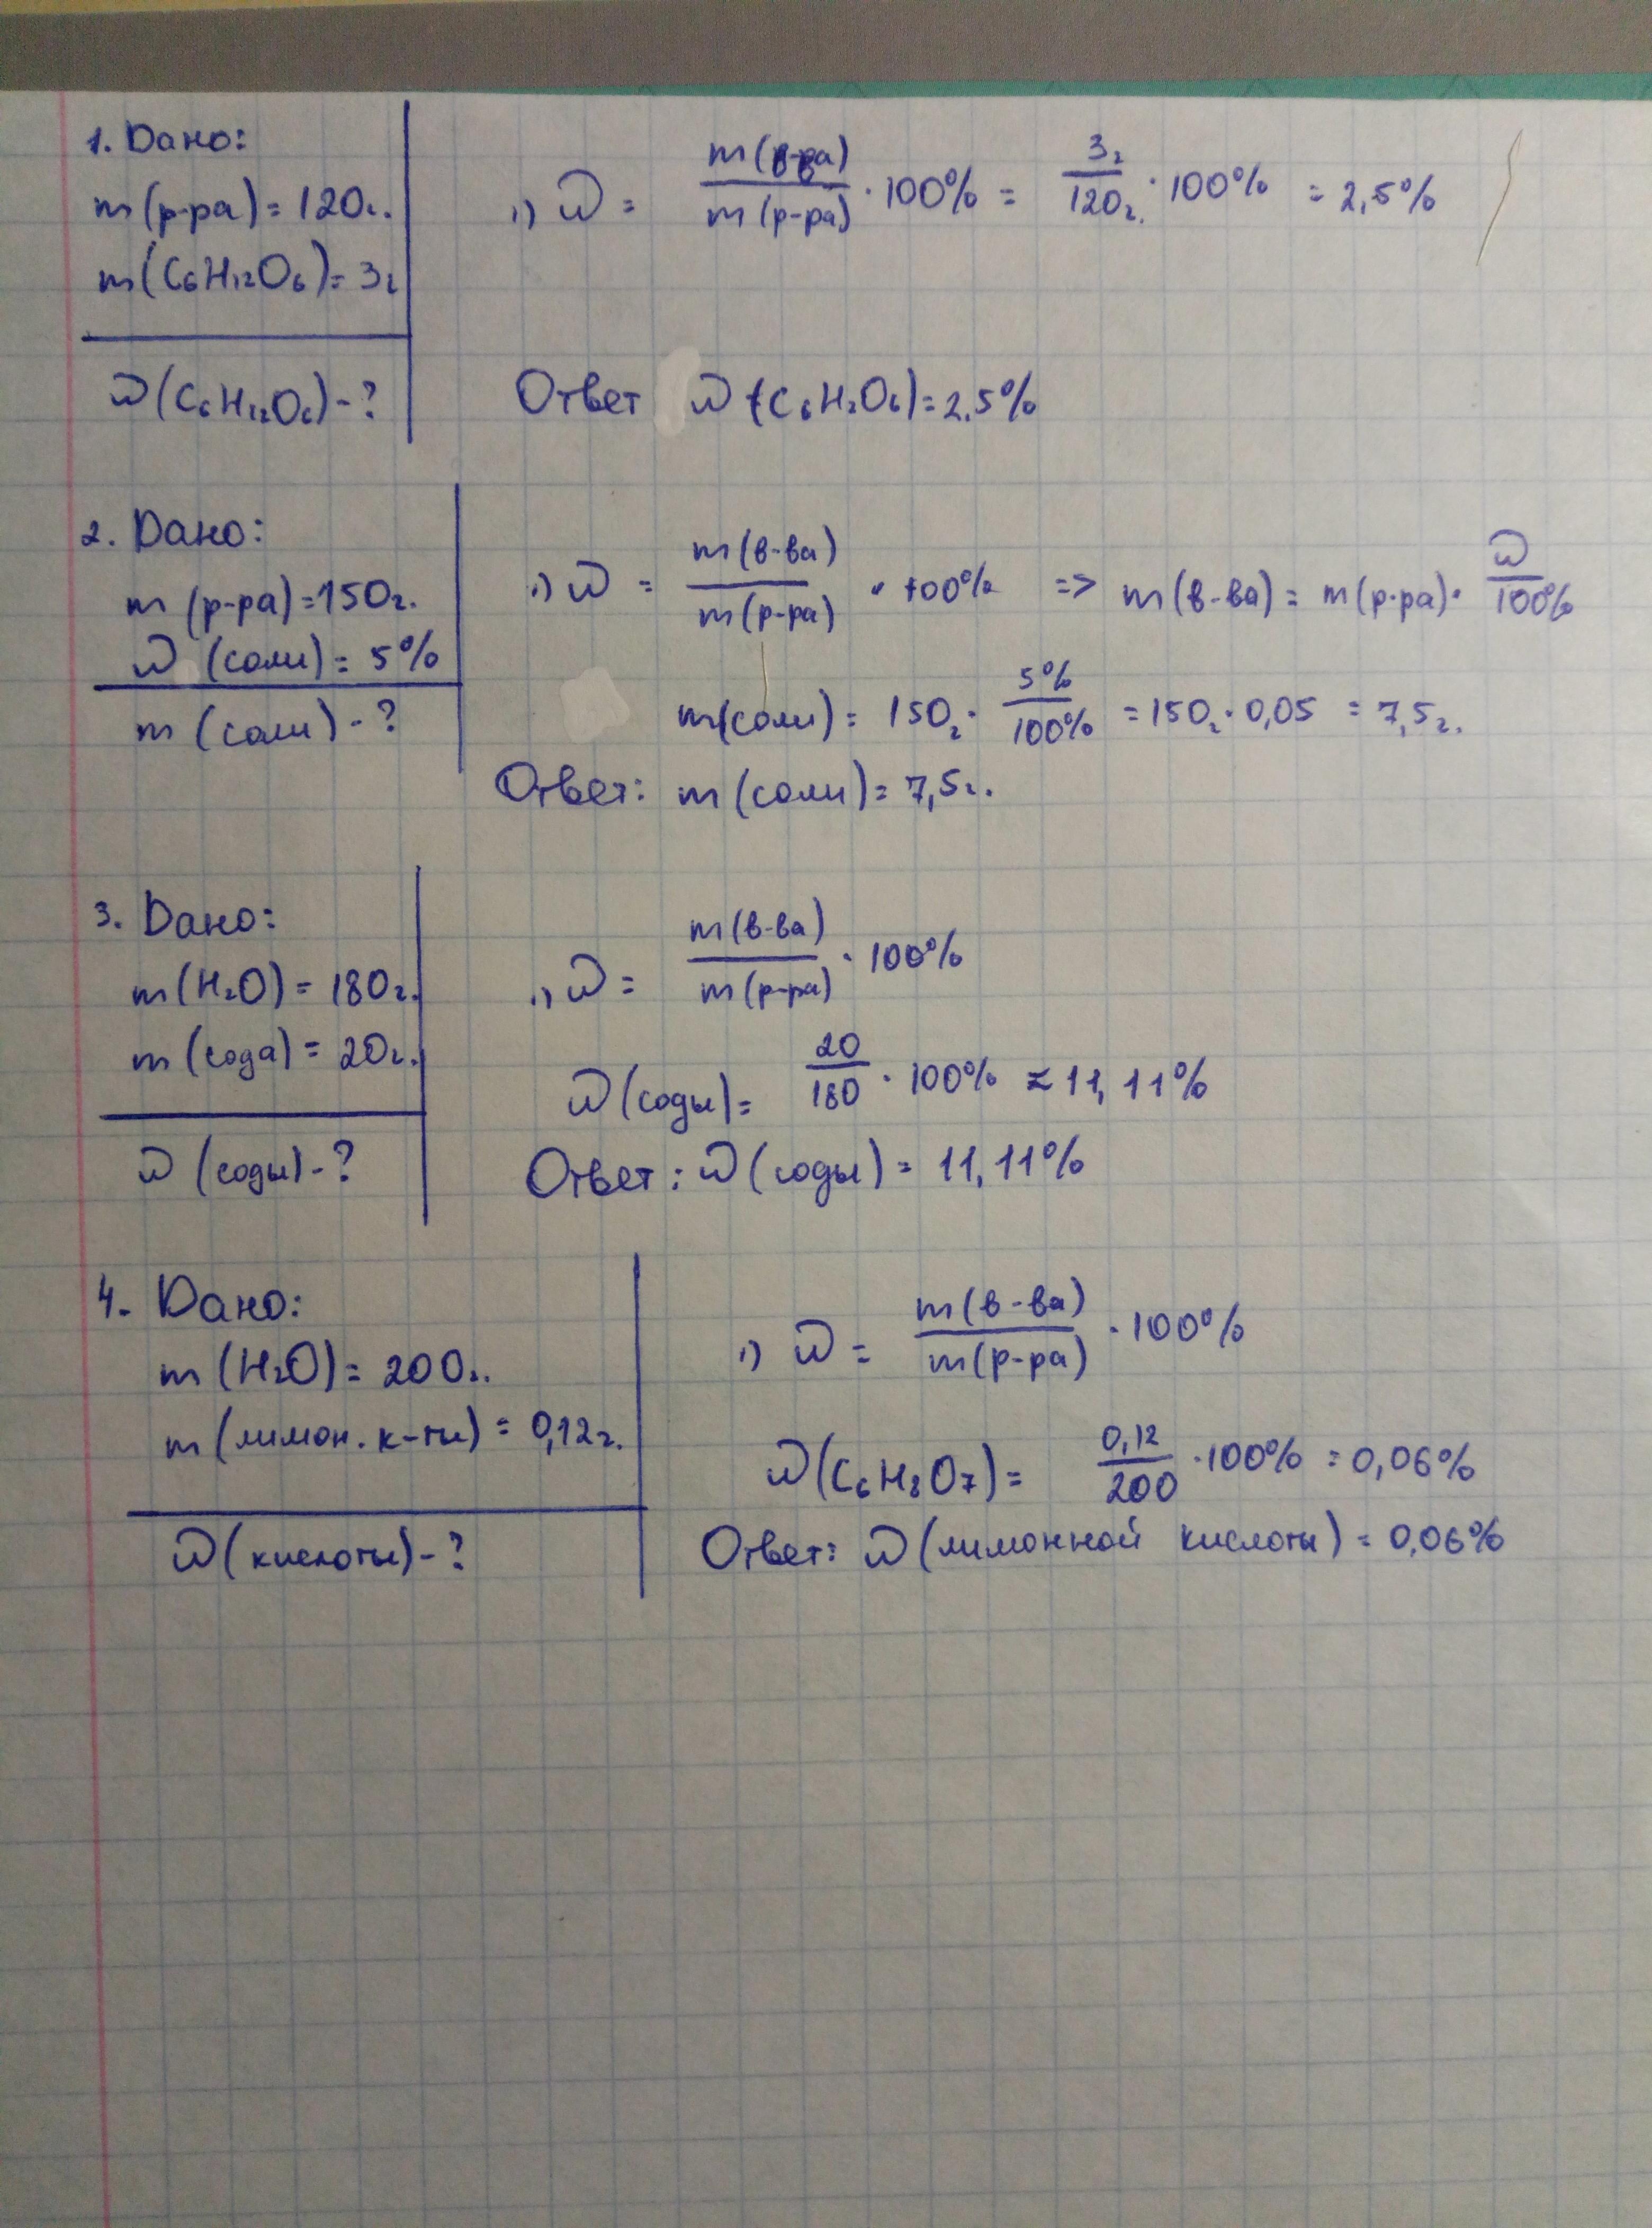 1. Дано:
m(р-ра) = 120г.
m(C₆H₁₂O₆) = 3г
ω(C₆H₁₂O₆) - ?
1) ω = m(в-ва)/m(р-ра) · 100% = 3г/120г. · 100% = 2,5%
Ответ ω (C₆H₂O₆) = 2,5%
2. Дано:
m (р-ра) = 150г.
ω (соли) = 5%
m (соли) - ?
1) ω = m(в-ва)/m(р-ра) · 100% => m(в-ва) = m(р-ра) · ω/100%
m(соли) = 150г · 5%/100% = 150г · 0,05 = 7,5г.
Ответ: m (соли) = 7,5г.
3. Дано:
m(H₂O) = 180г.
m (сода) = 20г.
ω (соды) - ?
1) ω = m(в-ва)/m(р-ра) · 100%
ω(соды) = 20/180 · 100% ≈ 11,11%
Ответ: ω (соды) = 11,11%
4. Дано:
m (H₂O) = 200г.
m (лимон. к-ты) = 0,12г.
ω (кислоты) - ?
1) ω = m(в-ва)/m(р-ра) · 100%
ω(C₆H₈O₇) = 0,12/200 · 100% = 0,06%
Ответ: ω (лимонной кислоты) = 0,06%